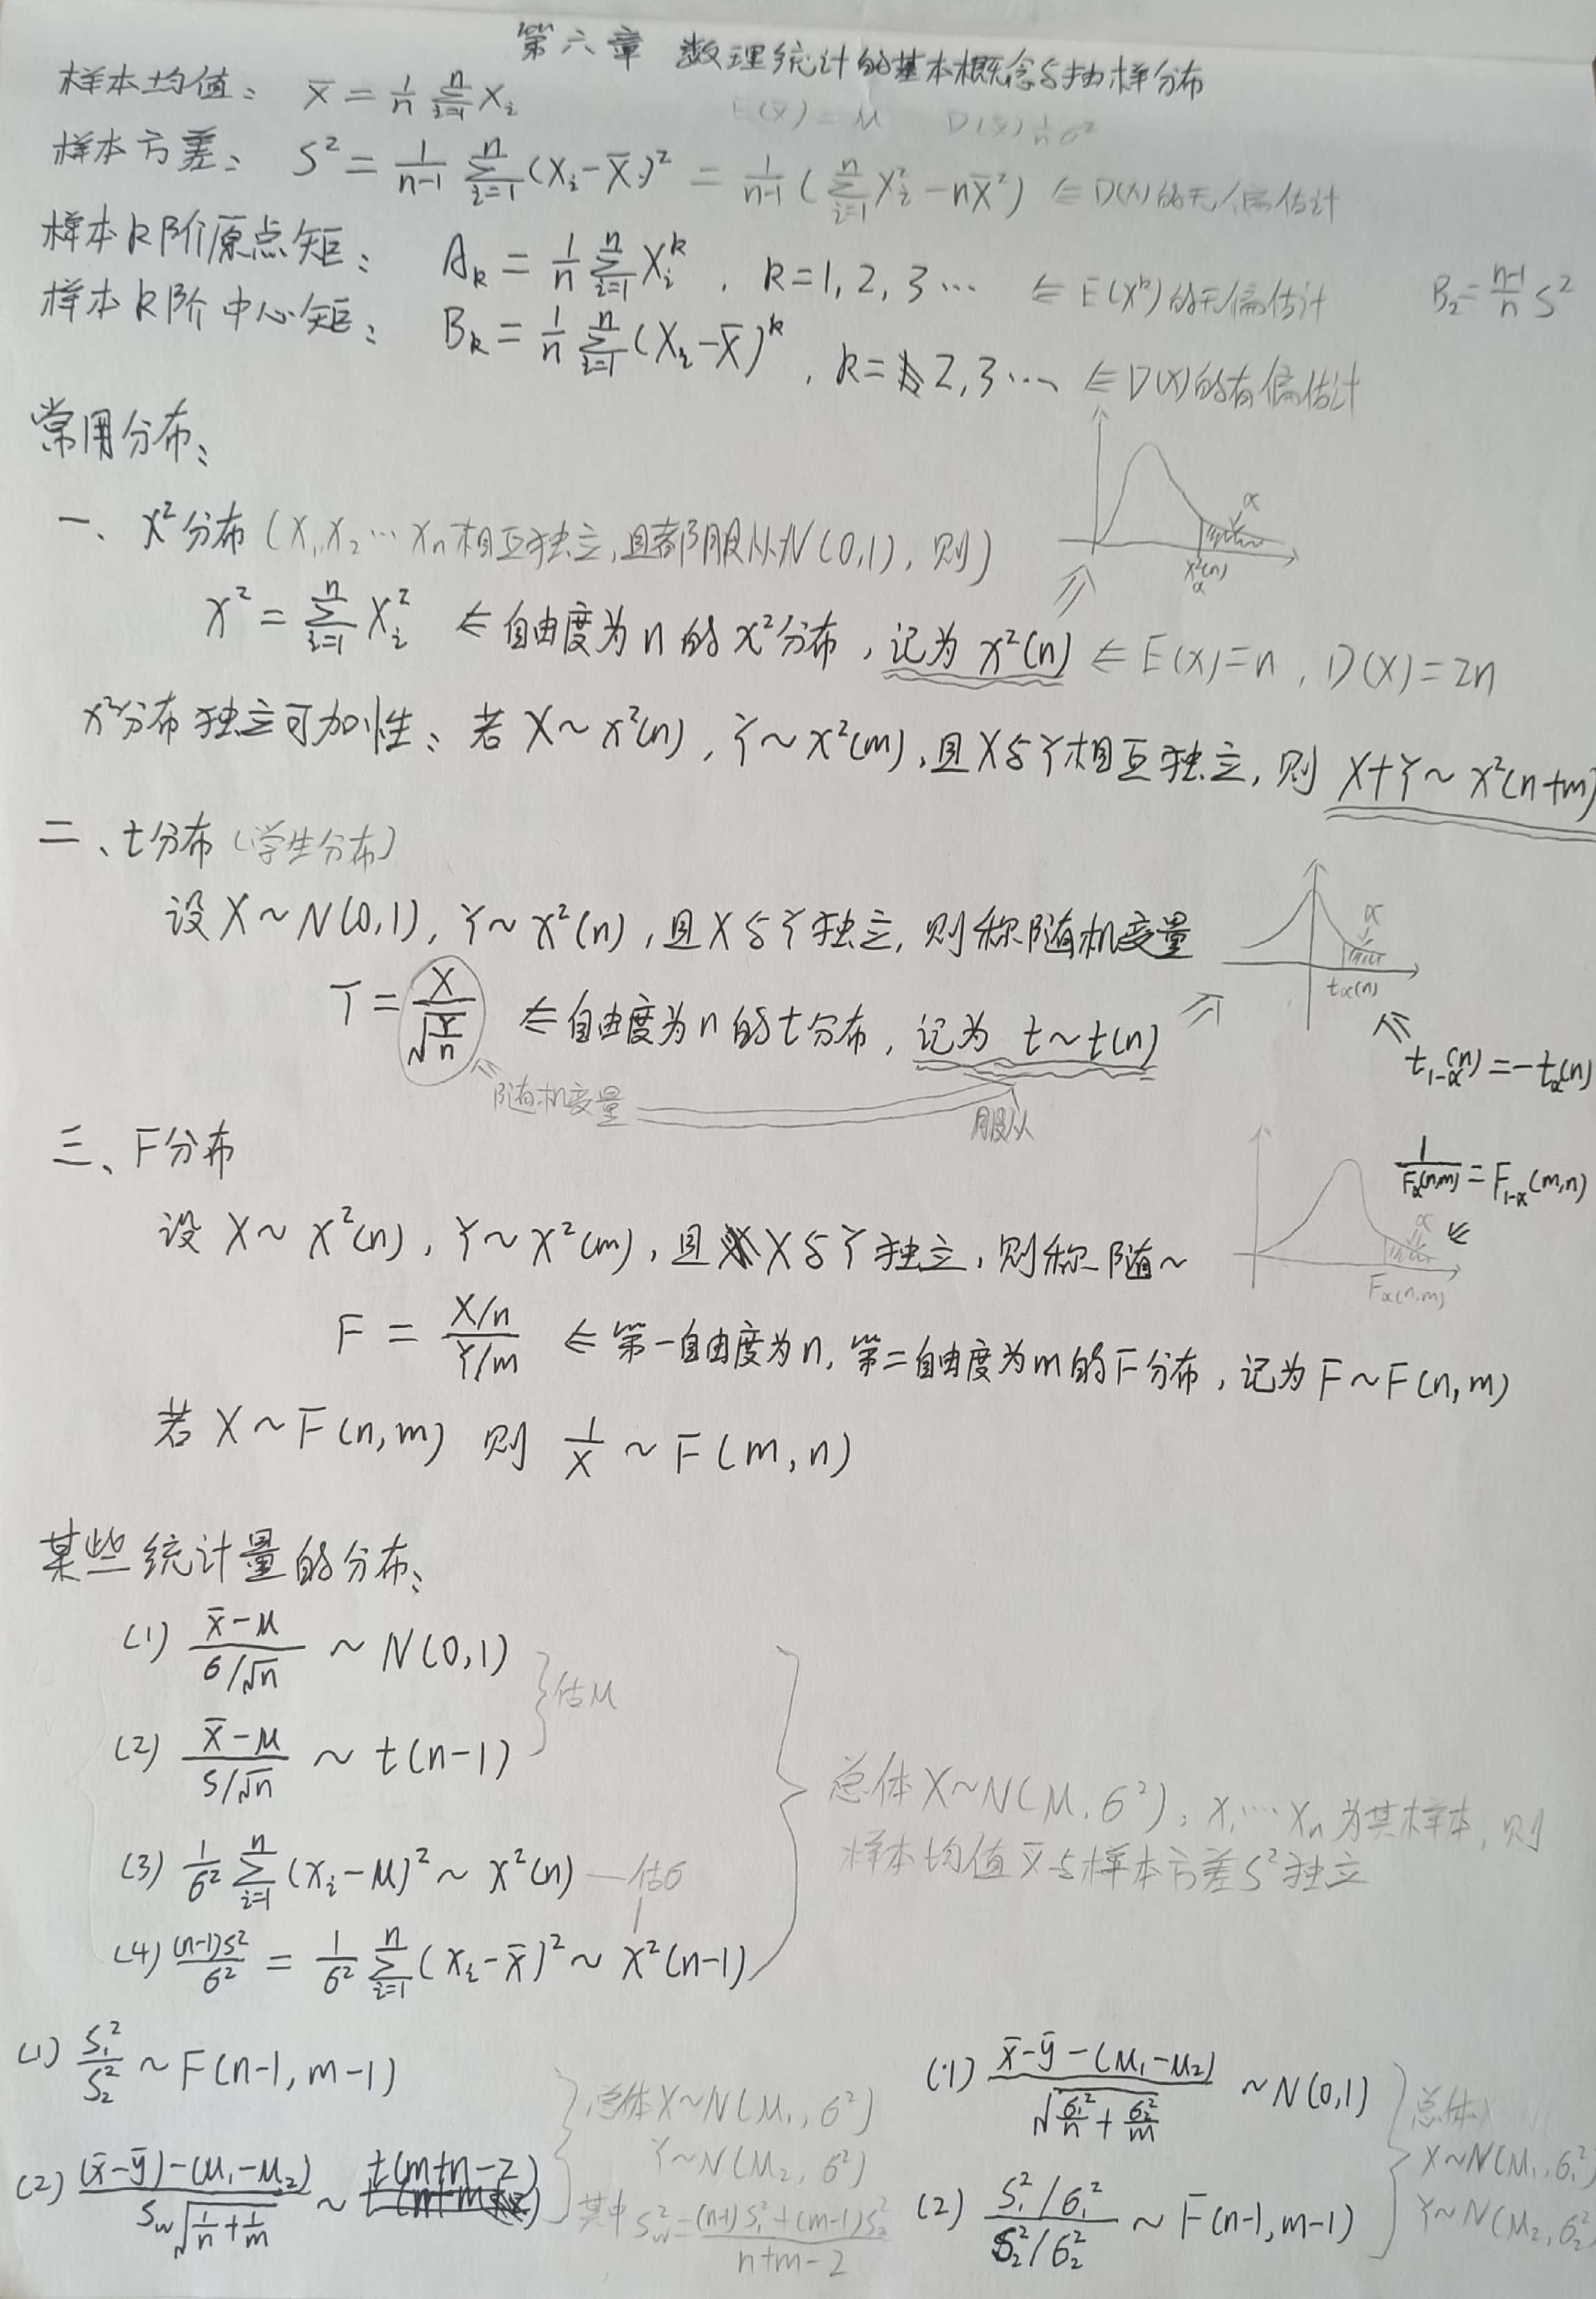 第六章 数理统计的基本概念与抽样分布
样本均值: x̄ = 1/n Σ_{i=1}^{n} X_i
E(x̄) = μ D(x̄) 1/n σ²
样本方差: S² = 1/(n-1) Σ_{i=1}^{n} (X_i - X̄)² = 1/(n-1) (Σ_{i=1}^{n} X_i² - nX̄²) ⇐ D(X)的无偏估计
样本k阶原点矩: A_k = 1/n Σ_{i=1}^{n} X_i^k , k=1,2,3… ⇐ E(X^k)的无偏估计
B₂ = (n-1)/n S²
样本k阶中心矩: B_k = 1/n Σ_{i=1}^{n} (X_i - X̄)^k , k= 2,3… ⇐ D(X)的有偏估计
常用分布:
一、χ²分布 (X₁,X₂…Xn相互独立,且都服从N(0,1), 则)
α
χ²_α(n)
χ² = Σ_{i=1}^{n} X_i² ⇐ 自由度为n的χ²分布, 记为χ²(n) ⇐ E(X)=n, D(X)=2n
χ²分布独立可加性: 若X~χ²(n), Y~χ²(m), 且X与Y相互独立, 则 X+Y~χ²(n+m)
二、t分布 (学生分布)
设X~N(0,1), Y~χ²(n), 且X与Y独立, 则称随机变量
α
t_α(n)
T = X/√(Y/n) ⇐ 自由度为n的t分布, 记为 t~t(n)
t_{1-α}(n) = -t_α(n)
随机变量
服从
三、F分布
1/F_α(n,m) = F_{1-α}(m,n)
α
F_α(n,m)
设X~χ²(n), Y~χ²(m), 且X与Y独立, 则称随~
F = (X/n)/(Y/m) ⇐ 第一自由度为n, 第二自由度为m的F分布, 记为F~F(n,m)
若X~F(n,m) 则 1/X ~ F(m,n)
某些统计量的分布:
(1) (x̄-μ)/(σ/√n) ~ N(0,1)
(2) (x̄-μ)/(S/√n) ~ t(n-1)
估μ
(3) 1/σ² Σ_{i=1}^{n} (x_i-μ)² ~ χ²(n) — 估σ
(4) (n-1)S²/σ² = 1/σ² Σ_{i=1}^{n} (x_i-x̄)² ~ χ²(n-1)
总体X~N(μ,σ²), x₁…xn为其样本, 则
样本均值x̄与样本方差S²独立
(1) S₁²/S₂² ~ F(n-1, m-1)
(2) ((x̄-ȳ)-(μ₁-μ₂))/(S_w√(1/n+1/m)) ~ t(m+n-2)
总体X~N(μ₁,σ²)
Y~N(μ₂,σ²)
其中 S_w² = ((n-1)S₁²+(m-1)S₂²)/(n+m-2)
(1) (x̄-ȳ-(μ₁-μ₂))/√(σ₁²/n+σ₂²/m) ~ N(0,1)
(2) (S₁²/σ₁²)/(S₂²/σ₂²) ~ F(n-1, m-1)
总体
X~N(μ₁,σ₁²)
Y~N(μ₂,σ₂²)